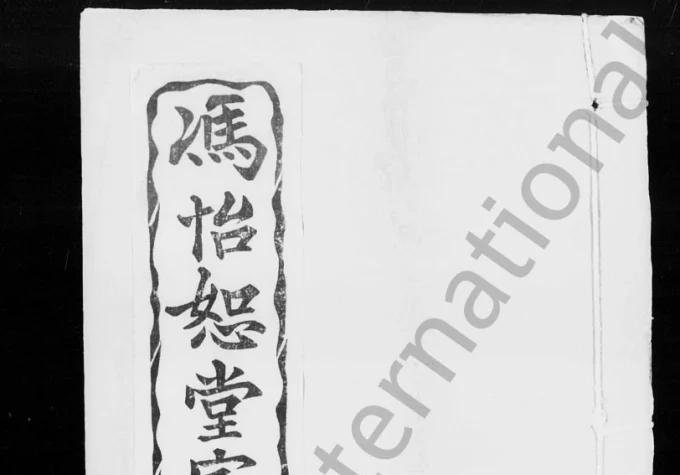 馮怡恕堂
ternational